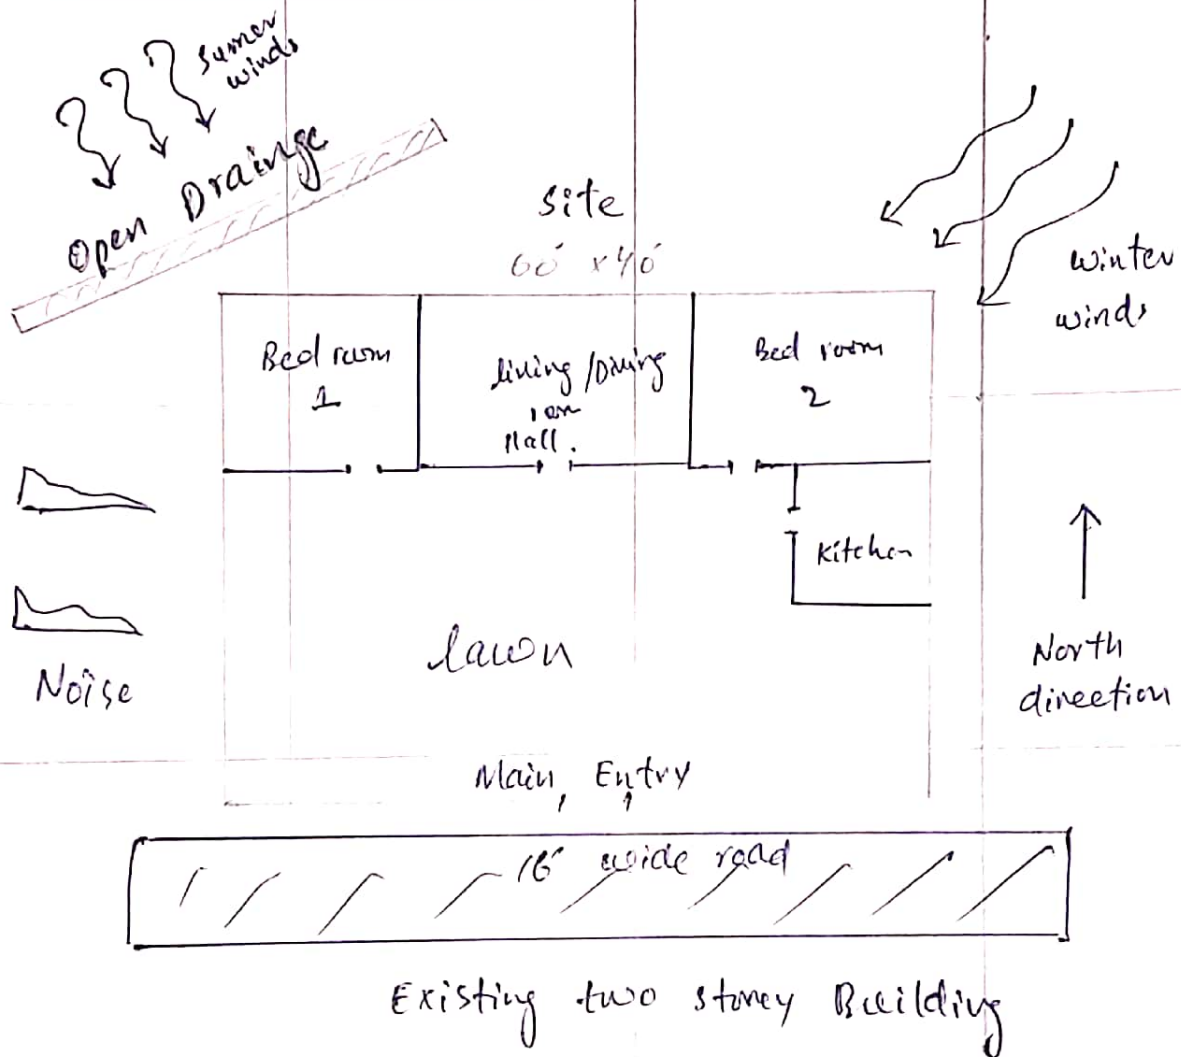 Sumer
winds
Open Drainge
Site
60' x 40'
winter
winds
Bed room
1
Living/Dining
Hall.
Bed room
2
Kitchen
Noise
lawn
North
direction
Main Entry
16' wide road
Existing two storey Building